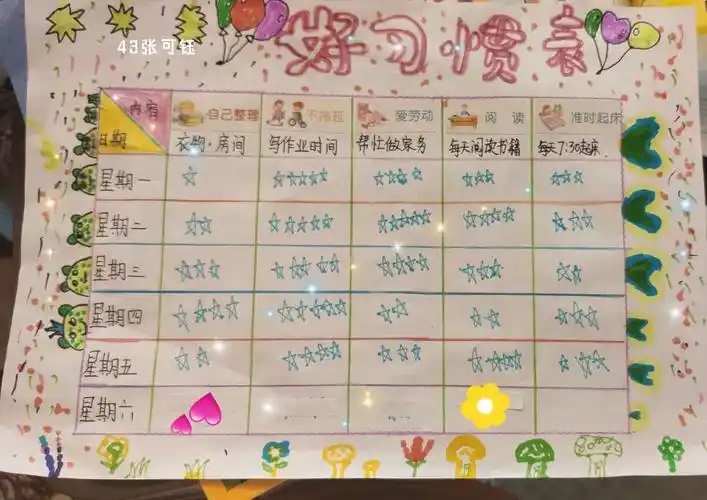 43张可钰
好习惯表
内容
日期
自己整理
不拖拉
爱劳动
阅 读
准时起床
衣物、房间
写作业时间
帮忙做家务
每天阅读书籍
每天7:30起床.
星期一
星期二
星期三
星期四
星期五
星期六